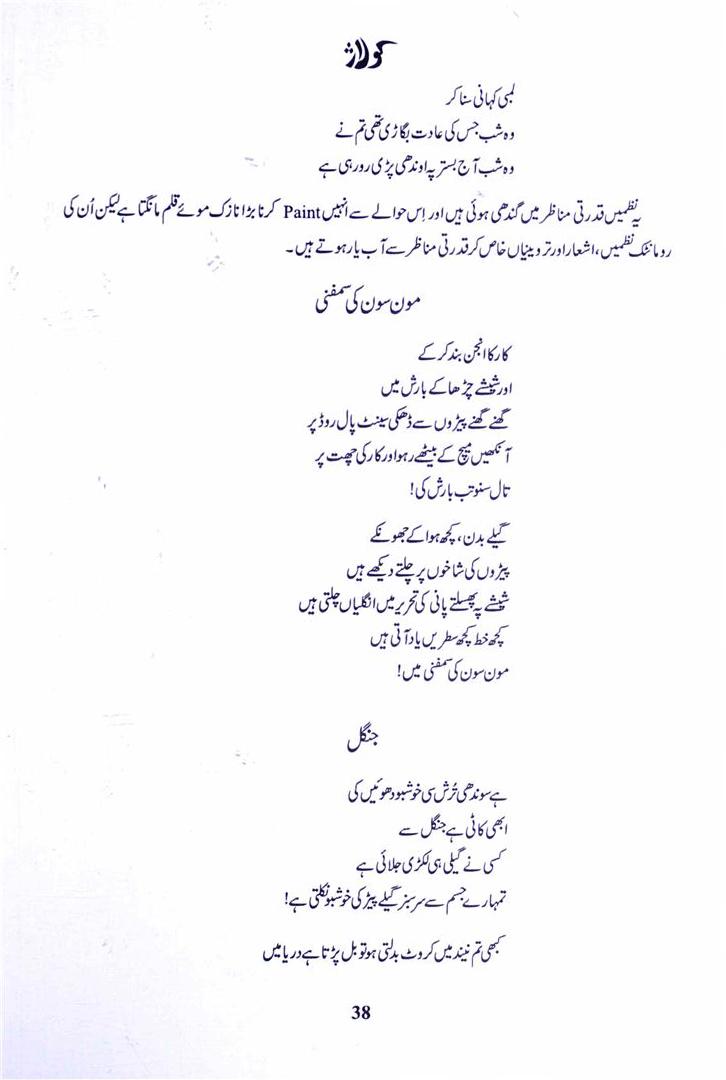 کولاژ
لمبی کہانی سنا کر
وہ شب جس کی عادت بگاڑی تھی تم نے
وہ شب آج بستر پہ اوندھی پڑی رو رہی ہے
یہ نظمیں قدرتی مناظر میں گندھی ہوئی ہیں اور اِس حوالے سے انہیں Paint کرنا بڑا نازک موئے قلم مانگتا ہے لیکن اُن کی
رومانٹک نظمیں، اشعار اور تروینیاں خاص کر قدرتی مناظر سے آب یار ہوتے ہیں۔
مون سون کی سمفنی
کار کا انجن بند کر کے
اور شیشے چڑھا کے بارش میں
گھنے گھنے پیڑوں سے ڈھکی سینٹ پال روڈ پر
آنکھیں میچ کے بیٹھے رہو اور کار کی چھت پر
تال سنو تب بارش کی!
گیلے بدن، کچھ ہوا کے جھونکے
پیڑوں کی شاخوں پر چلتے دیکھے ہیں
شیشے پہ پھسلتے پانی کی تحریر میں انگلیاں چلتی ہیں
کچھ خط کچھ سطریں یاد آتی ہیں
مون سون کی سمفنی میں!
جنگل
ہے سوندھی تُرش سی خوشبو دھوئیں کی
ابھی کاٹی ہے جنگل سے
کسی نے گیلی ہی لکڑی جلائی ہے
تمہارے جسم سے سرسبز گیلے پیڑ کی خوشبو نکلتی ہے!
کبھی تم نیند میں کروٹ بدلتی ہو تو بل پڑتا ہے دریا میں
38